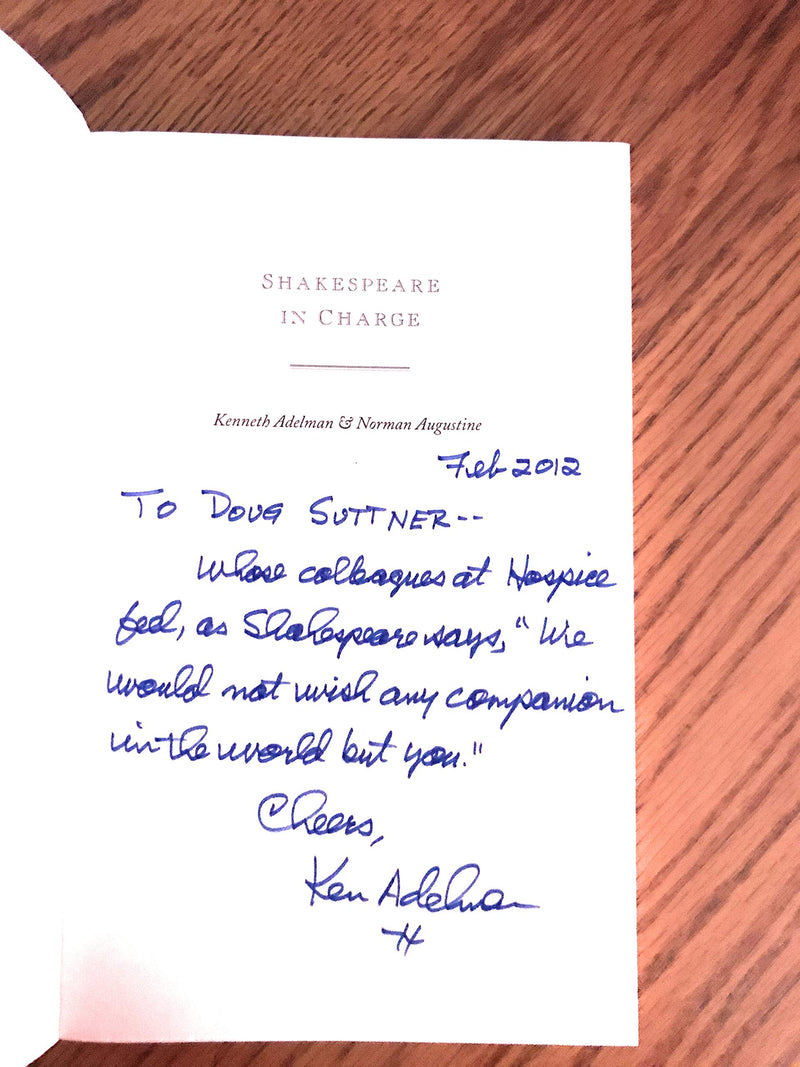 SHAKESPEARE
IN CHARGE
Kenneth Adelman & Norman Augustine
Feb 2012
To DOUG SUTTNER--
Whose colleagues at Hospice
feel, as Shakespeare says, "We
would not wish any companion
in the world but you."
Cheers,
Ken Adelman